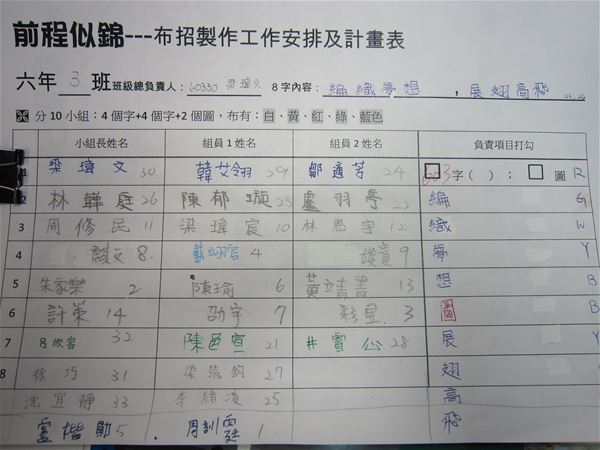 前程似錦---布招製作工作安排及計畫表
六年 3 班 班級總負責人：60330 梁瑋文 8字內容：編織夢想，展翅高飛
※ 分10小組：4個字+4個字+2個圖，布有：白、黃、紅、綠、藍色
小組長姓名 組員1姓名 組員2姓名 負責項目打勾
1 梁瑋文 30 韓艾翎 29 鄒適芳 24 603字( )；圖 R
2 林韡庭 26 陳郁璇 23 盧羽亭 22 編 G
3 周修民 11 梁瑋宸 10 林恩宇 12 織 W
4 顏文 8 戴翊宸 4 9 夢 Y
5 朱家樂 2 陳瑜 6 黃靖書 13 想 B
6 許策 14 劭宇 7 3 圖 B
7 呂欣容 32 陳邑宣 21 井睿心 28 展 Y
8 徐巧 31 梁筑鈞 27 翅
沈宜靜 33 李緒凌 25 高
盧楷勛 5 周訓霆 1 飛